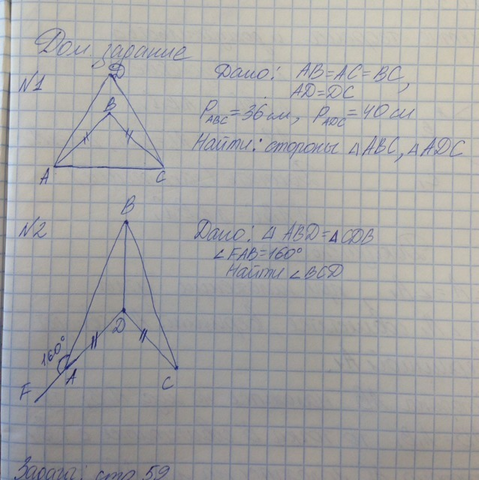 Дом задание
N1
Дано: AB=AC=BC,
AD=DC
P ABC=36см, P ADC=40см
Найти: стороны △ABC, △ADC
D
B
A
C
N2
Дано: △ABD=△CDB
∠FAB=160°
Найти ∠BCD
B
D
160°
A
C
F
Задачи: стр 59